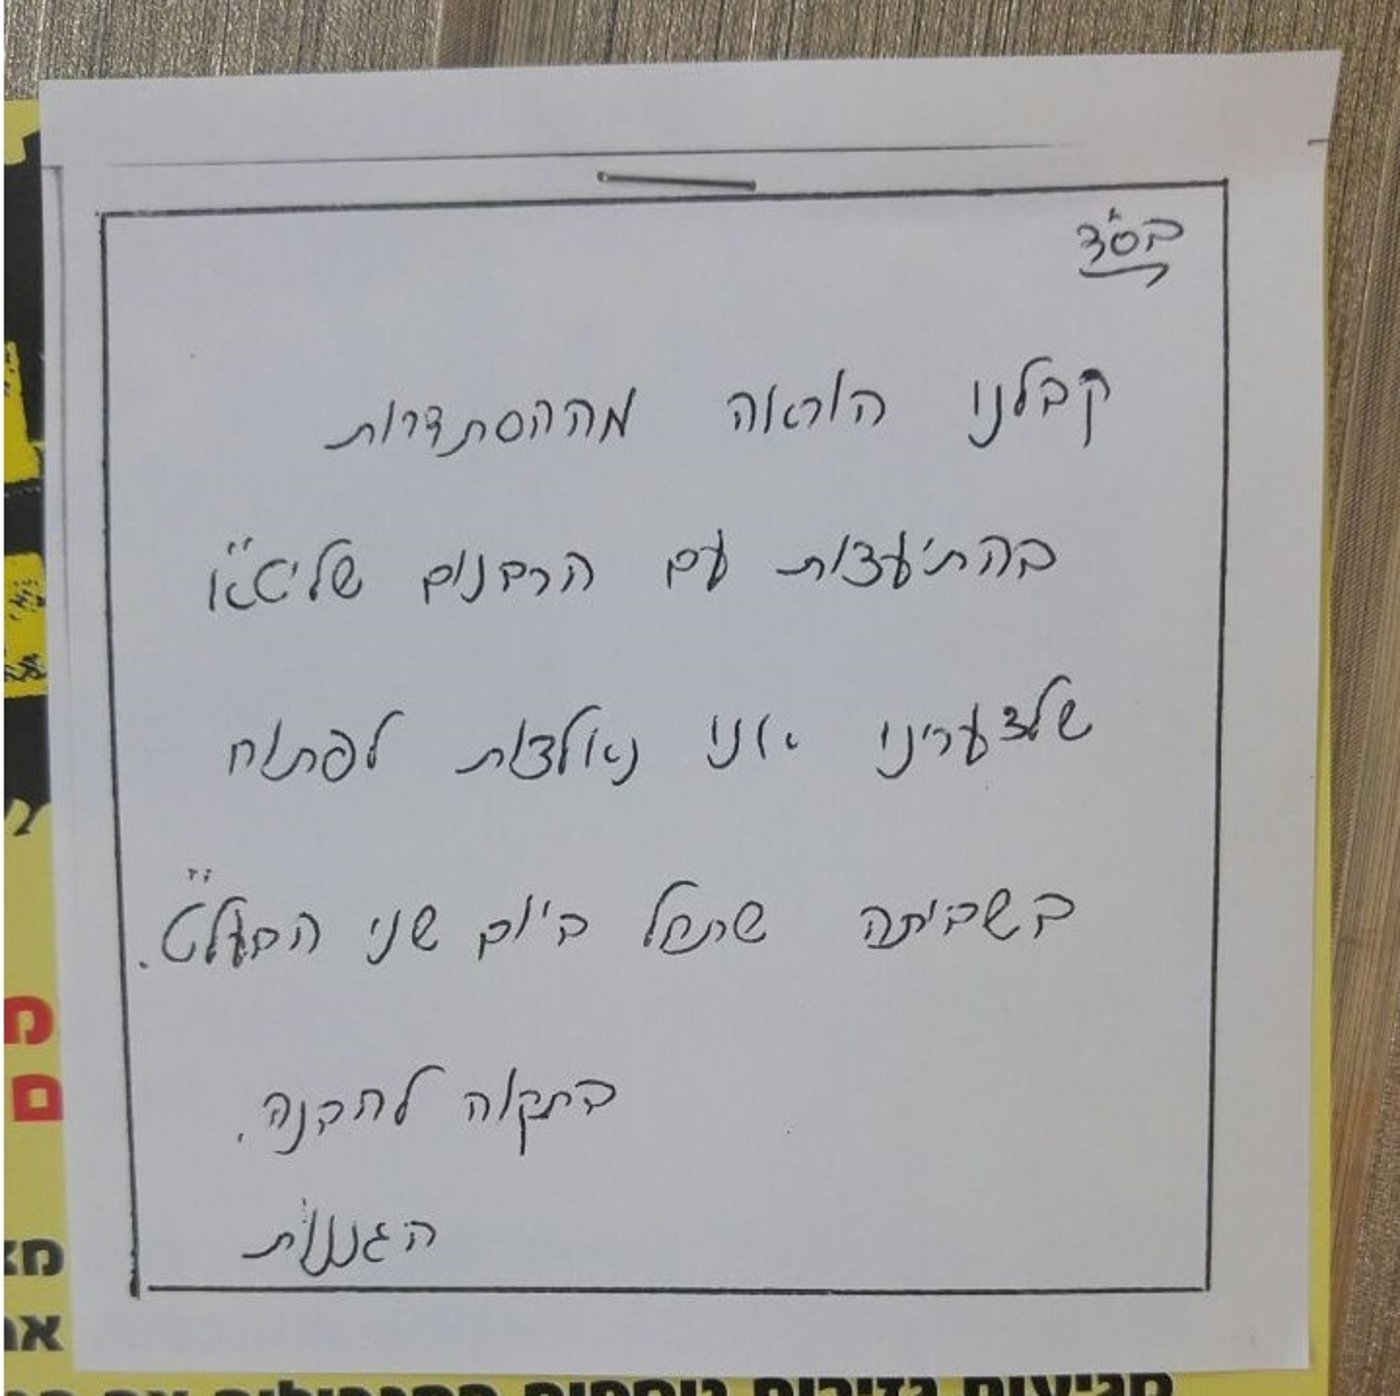 בס"ד
קבלנו הוראה מההסתדרות
בהתיעצות עם הרבנים שליט"א
שלצערינו אנו נאלצות לפתוח
בשביתה שתחל ביום שני הבעל"ט.
בתקוה להבנה.
הגננות
מ
ם